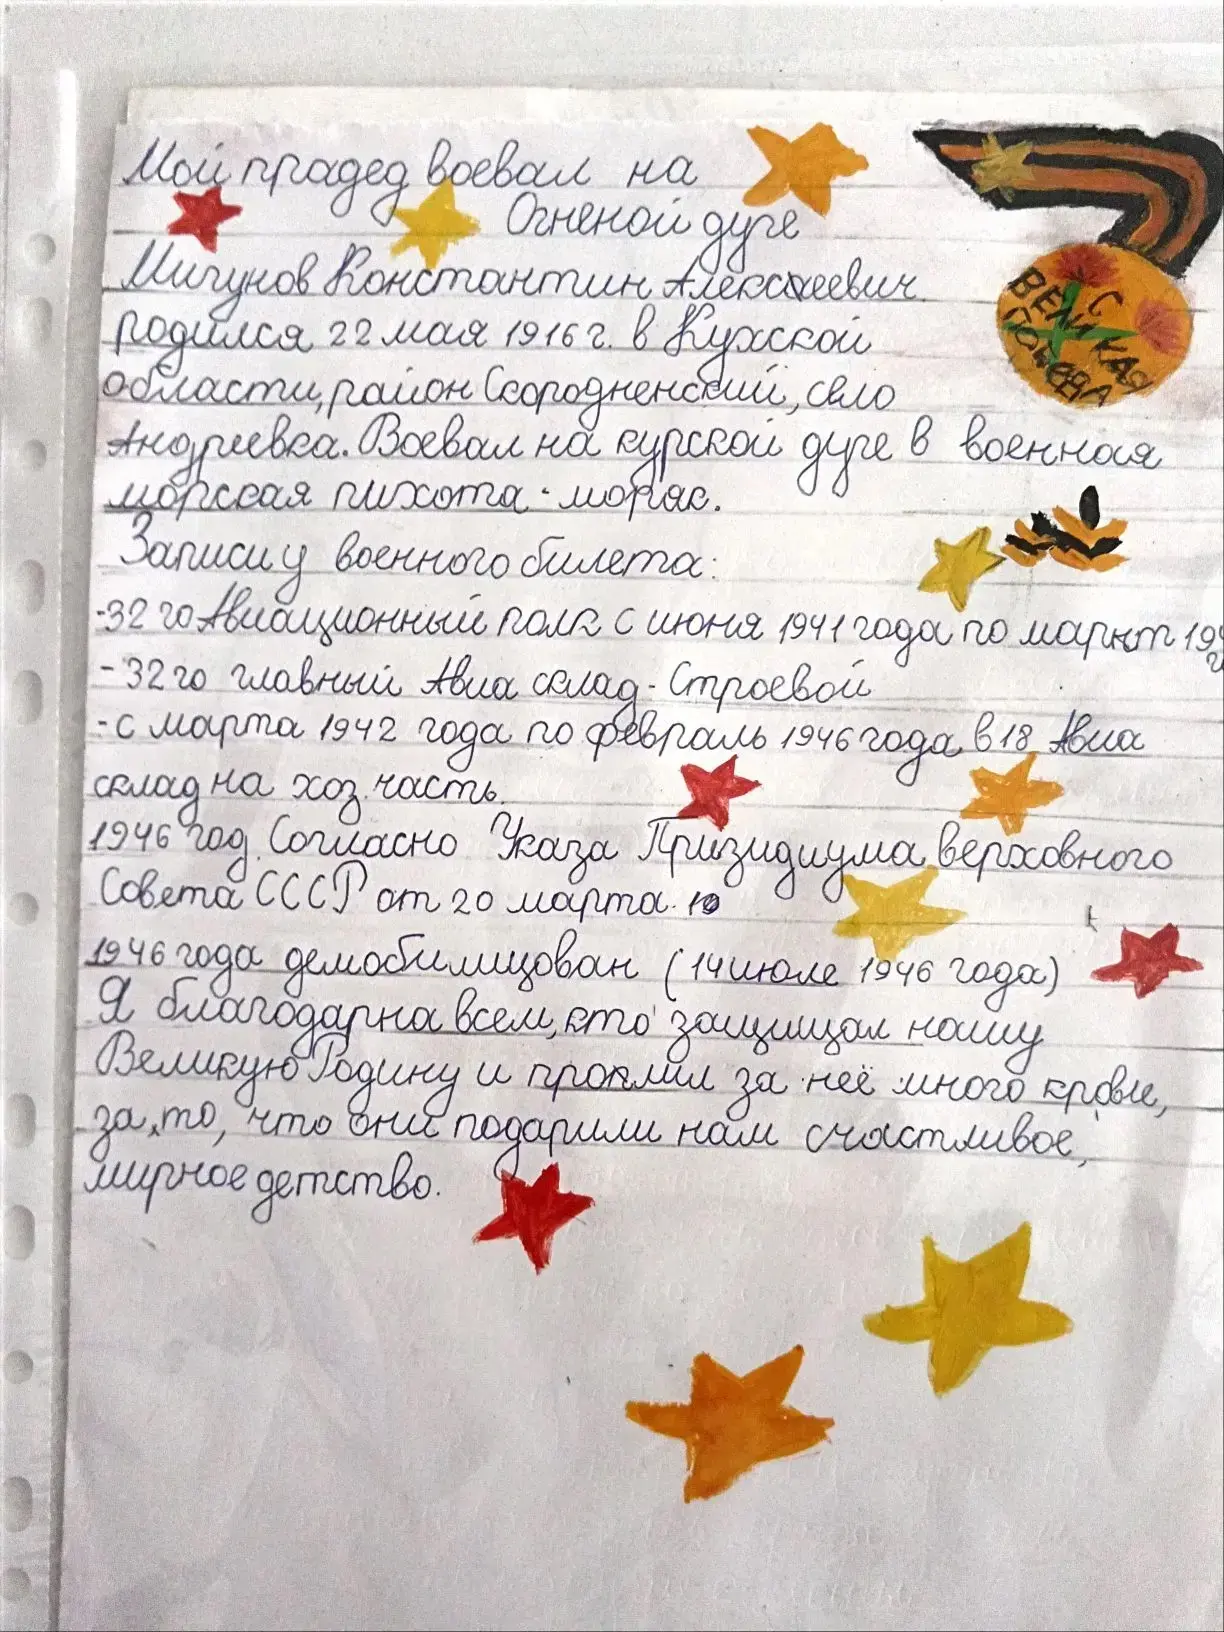 Мой прадед воевал на
Огненой дуге
Мигунов Константин Алексеевич
родился 22 мая 1916 г. в Кухской
области, район Скородненский, село
Андреевка. Воевал на курской дуге в военная
морская пихота - моряк.
С
ВЕЛИКАЯ
ПОБЕДА
Записи у военного билета:
-32 го Авиационный полк с июня 1941 года по март 194
- 32 го главный Авиа склад - Строевой
- с марта 1942 года по февраль 1946 года в 18 Авиа
склад на хоз. часть.
1946 год. Согласно Указа Призидиума верховного
Совета СССР от 20 марта.
1946 года демобилизован (14 июле 1946 года)
Я благодарна всем, кто защищал нашу
Великую Родину и проклил за неё много крове,
за то, что они подарили нам счастливое,
мирное детство.